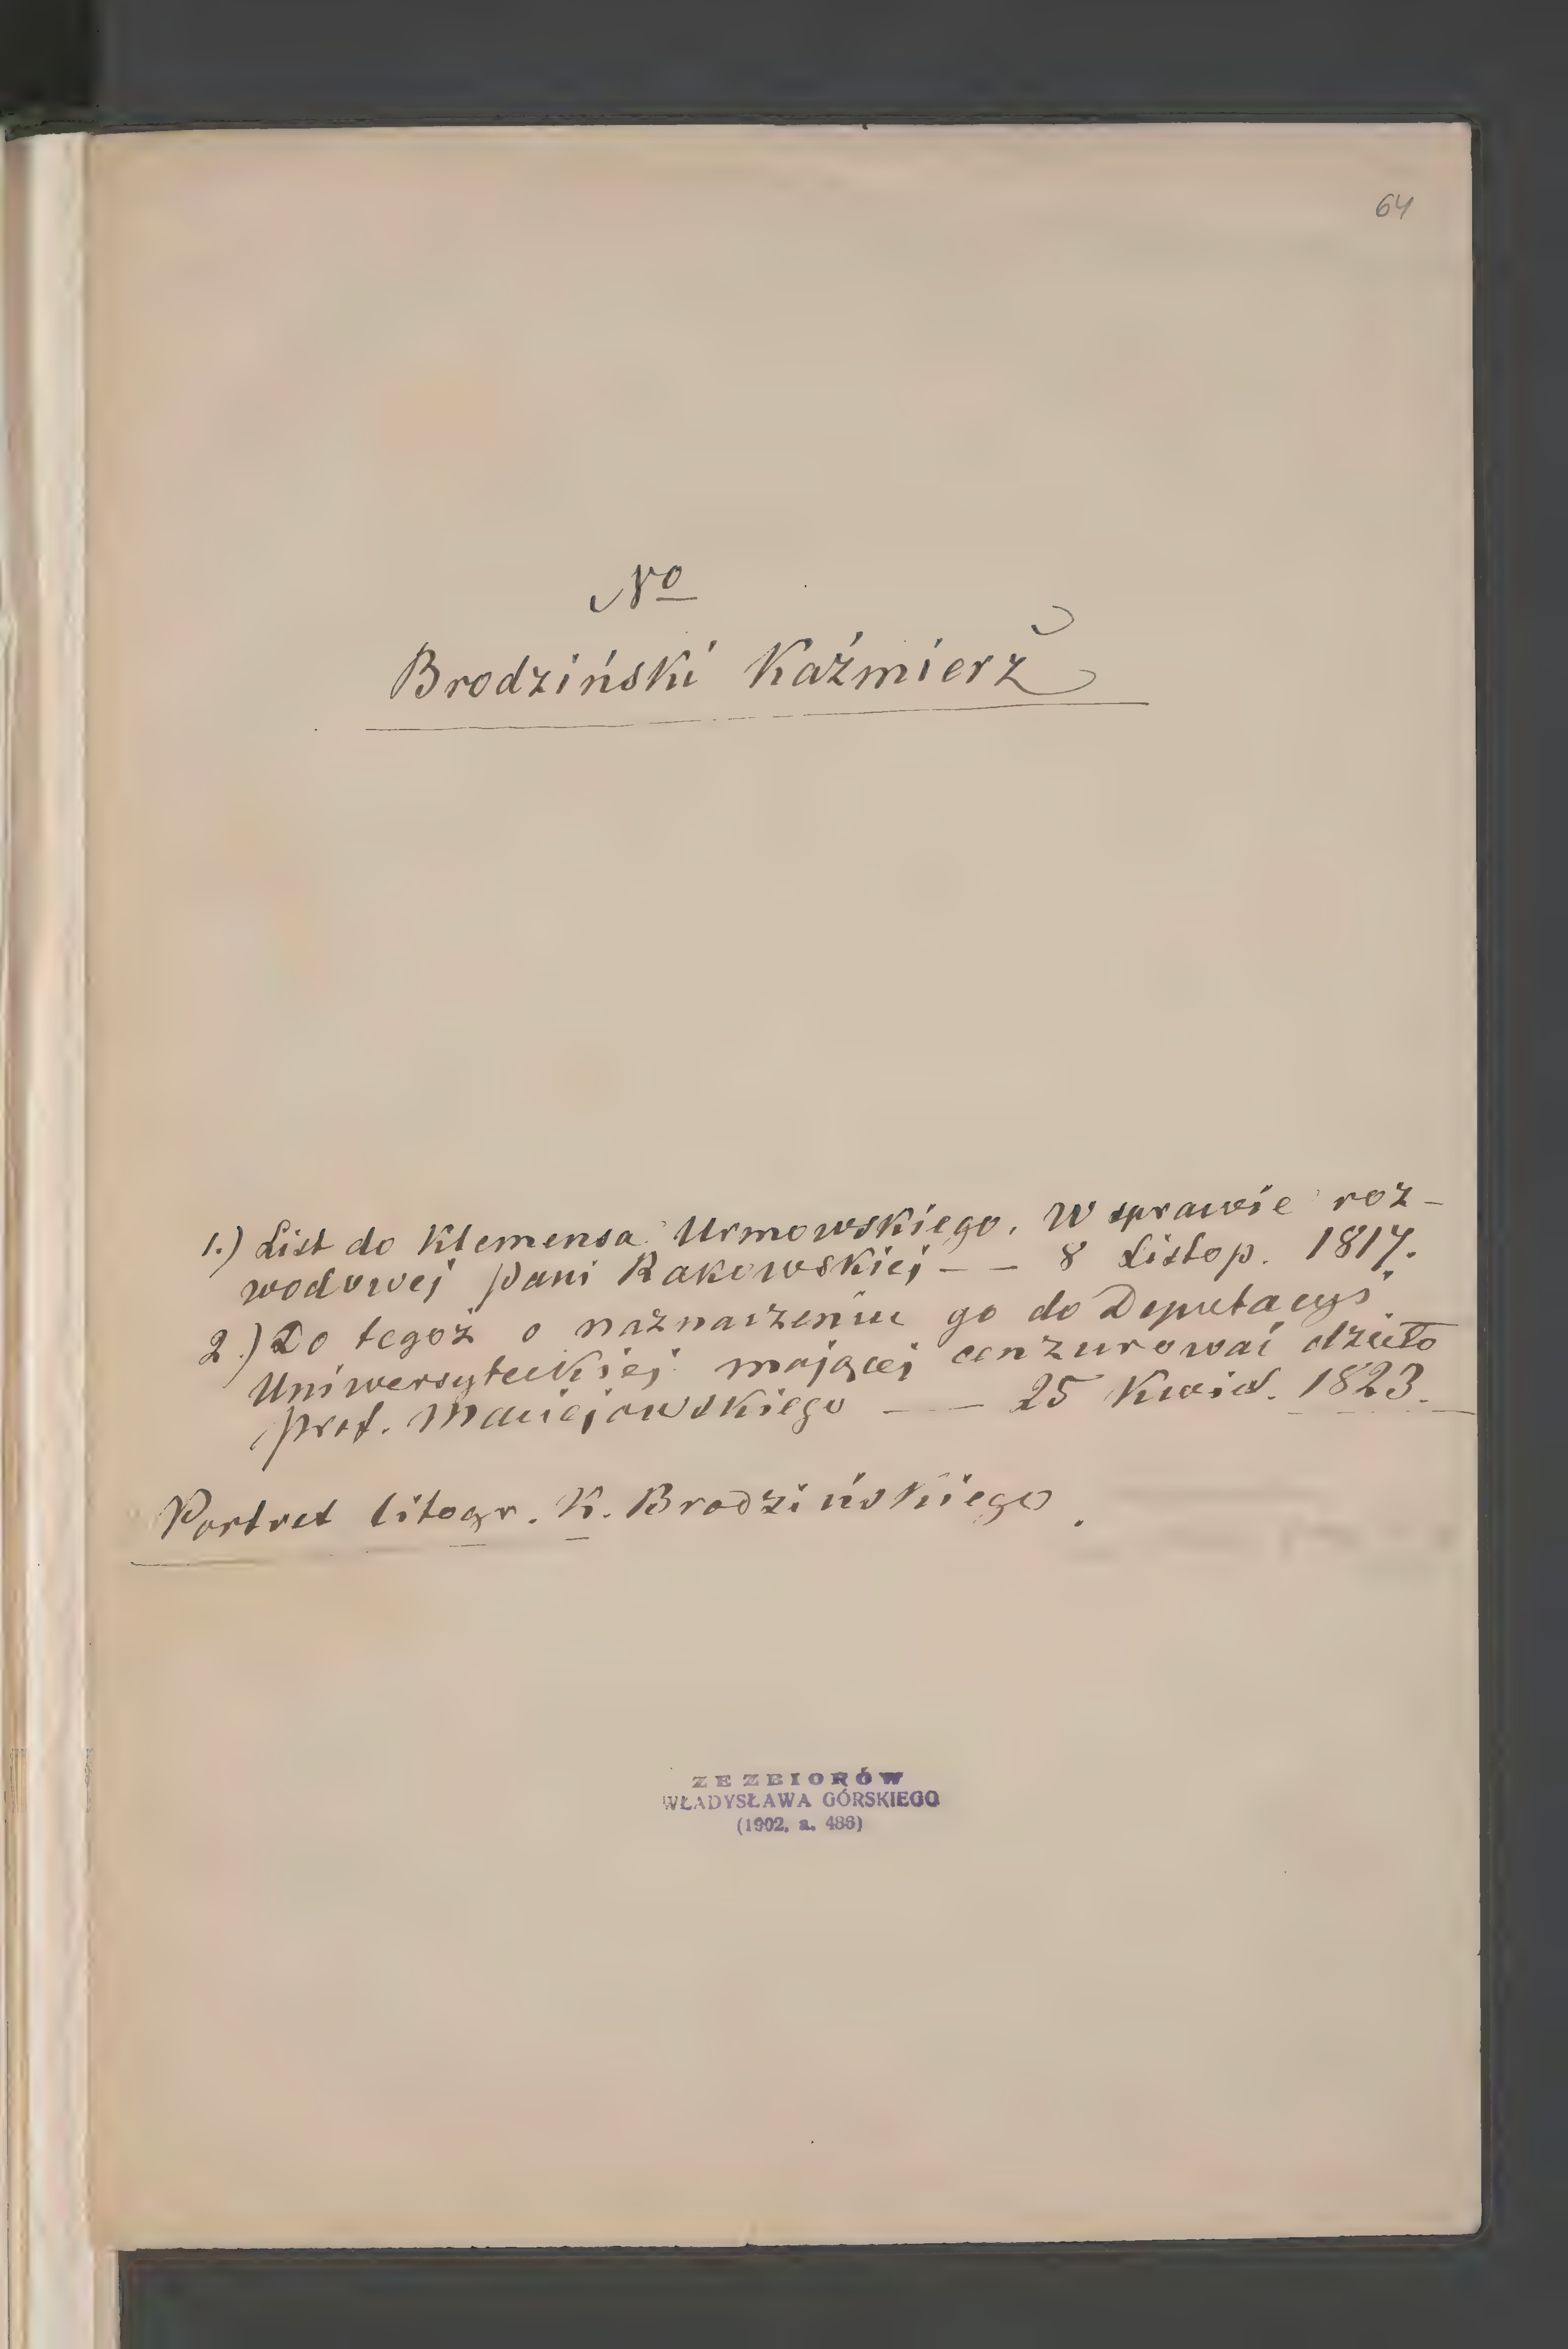 64
No
Brodziński Kaźmierz
1.) List do Klemensa Urmowskiego. W sprawie roz-
wodowej Pani Rakowskiej - - 8 Listop. 1817.
2.) Do tegoż o naznaczeniu go do Deputacyi
Uniwersyteckiej mającej cenzurować dzieło
prof. Maciejowskiego — — 25 Kwiet. 1823.
Portret litogr. K. Brodzińskiego.
ZE ZBIORÓW
WŁADYSŁAWA GÓRSKIEGO
(1902, a. 486)